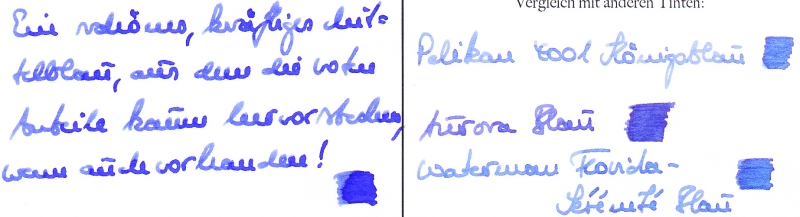 Ein schönes, kräftiges Mit-
telblau, aus dem die roten
Anteile kaum hervorstechen,
wenn auch vorhanden!
Vergleich mit anderen Tinten:
Pelikan 4001 Königsblau
Aurora Blau
Waterman Florida-
Sérénité Blau